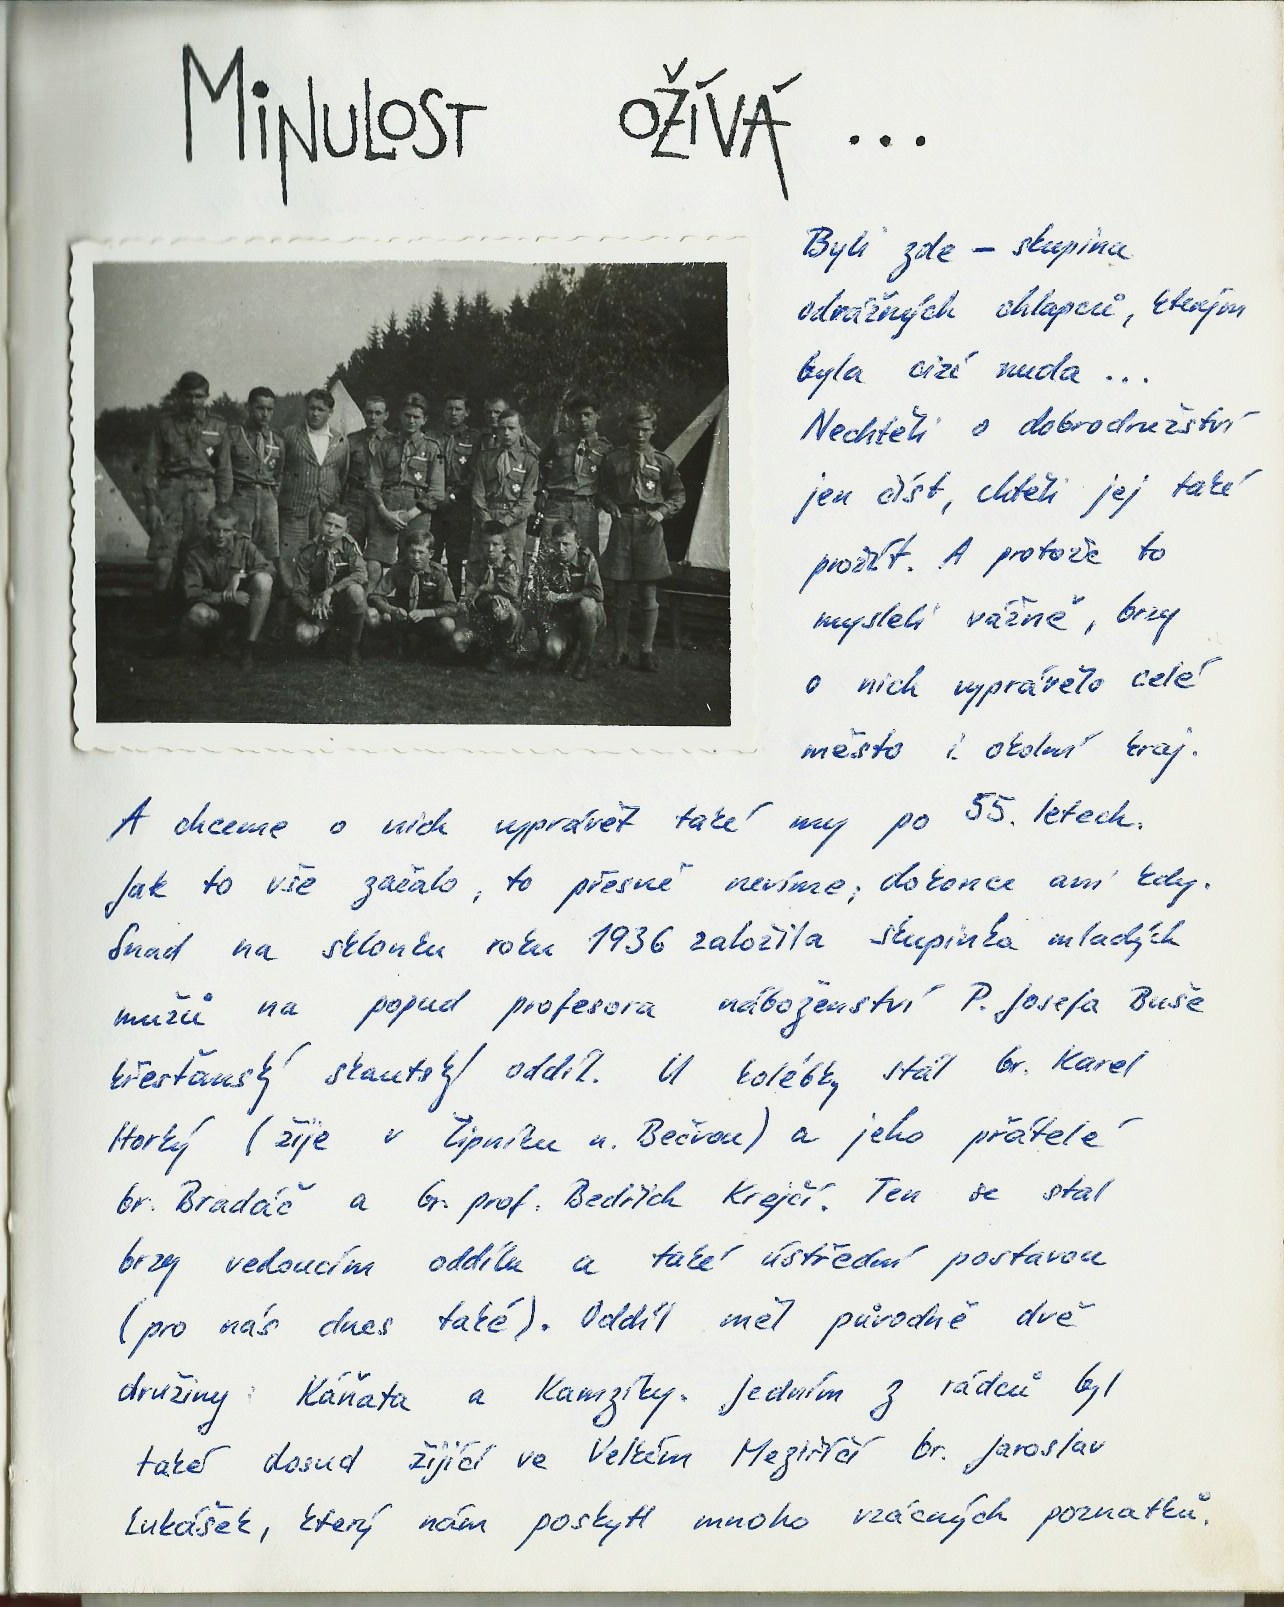 MINULOST OŽÍVÁ ...
Byli zde – skupina
odvážných chlapců, kterým
byla cizí nuda ...
Nechtěli o dobrodružství
jen číst, chtěli jej také
prožít. A protože to
mysleli vážně, brzy
o nich vyprávělo celé
město i okolní kraj.
A chceme o nich vyprávět také my po 55. letech.
Jak to vše začalo, to přesně nevíme; dokonce ani kdy.
Snad na sklonku roku 1936 založila skupinka mladých
mužů na popud profesora náboženství P. Josefa Buše
křesťanský skautský oddíl. U kolébky stál br. Karel
Horký (žije v Lipníku n. Bečvou) a jeho přátelé
br. Bradáč a br. prof. Bedřich Krejčí. Ten se stal
brzy vedoucím oddílu a také ústřední postavou
(pro nás dnes také). Oddíl měl původně dvě
družiny: Káňata a Kamzíky. Jedním z rádců byl
také dosud žijící ve Velkém Meziříčí br. Jaroslav
Lukášek, který nám poskytl mnoho vzácných poznatků.